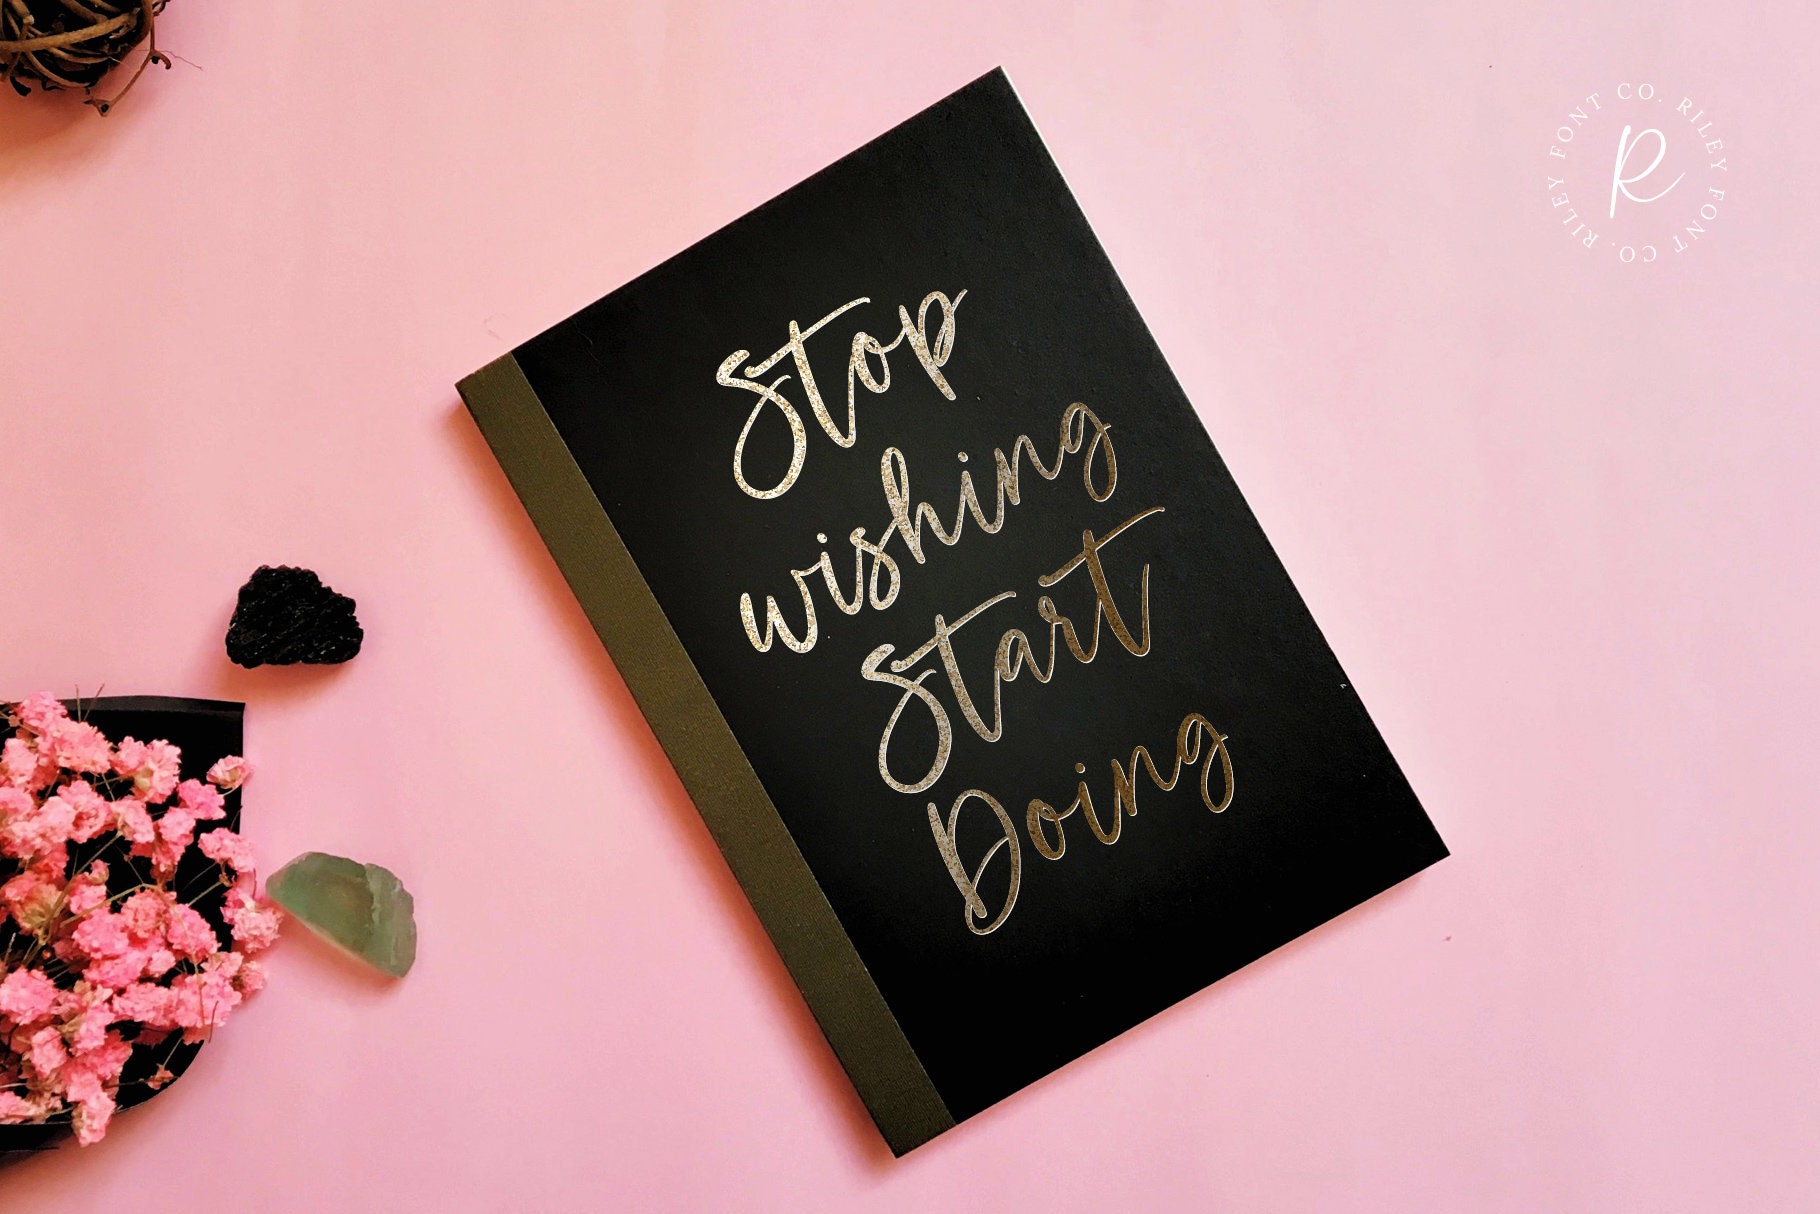 Stop
wishing
Start
Doing
RILEY FONT CO. RILEY FONT CO.
R